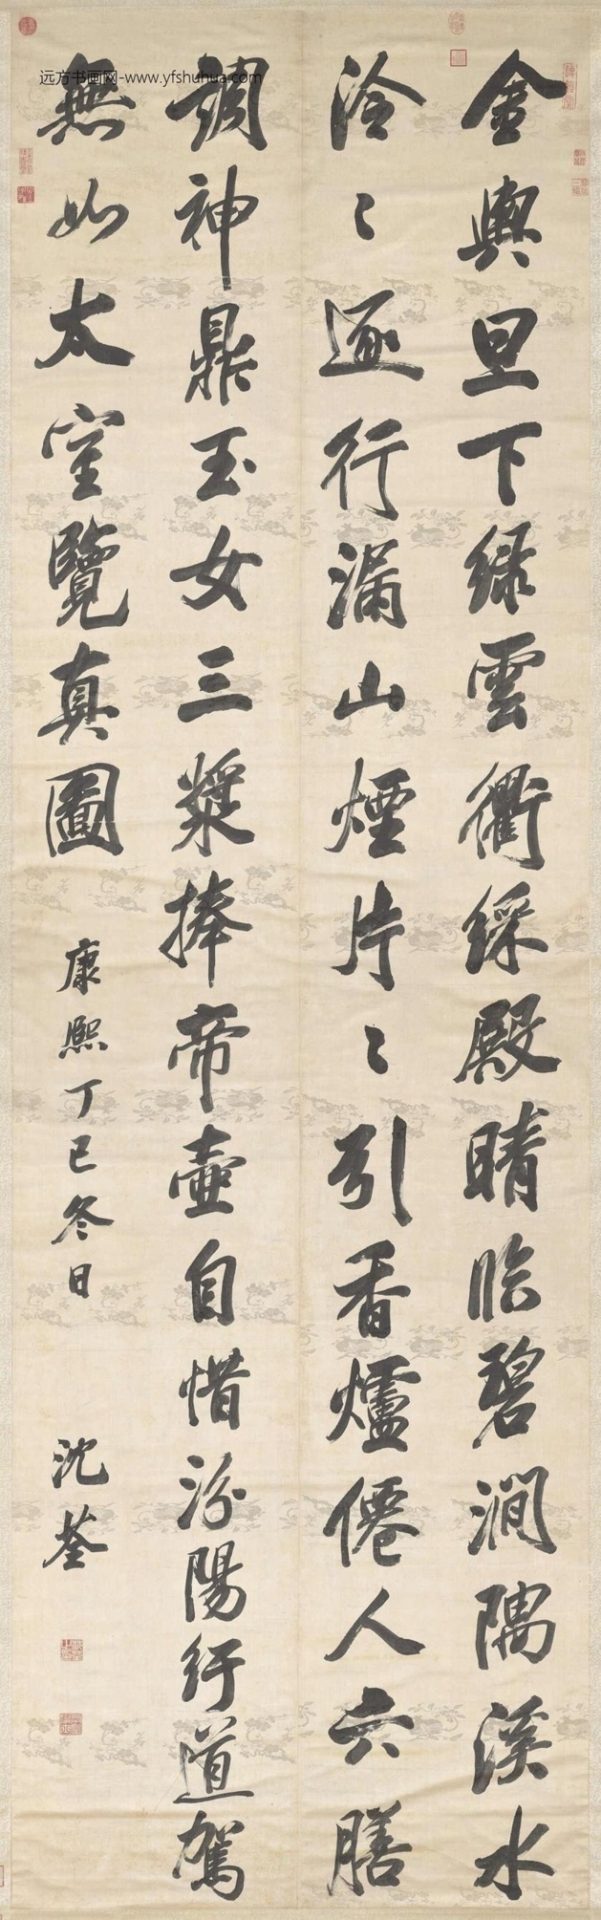 金輿旦下綠雲衢綵殿晴臨碧澗隅溪水
泠〻逐行漏山煙片〻引香爐僊人六膳
調神鼎玉女三漿捧帝壺自惜汾陽紆道駕
無如太室覽真圖
康熙丁巳冬日
沈荃
远方书画网-www.yfshuhua.com